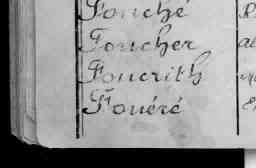 Fouché
Foucher
Foucrith
Fouéré